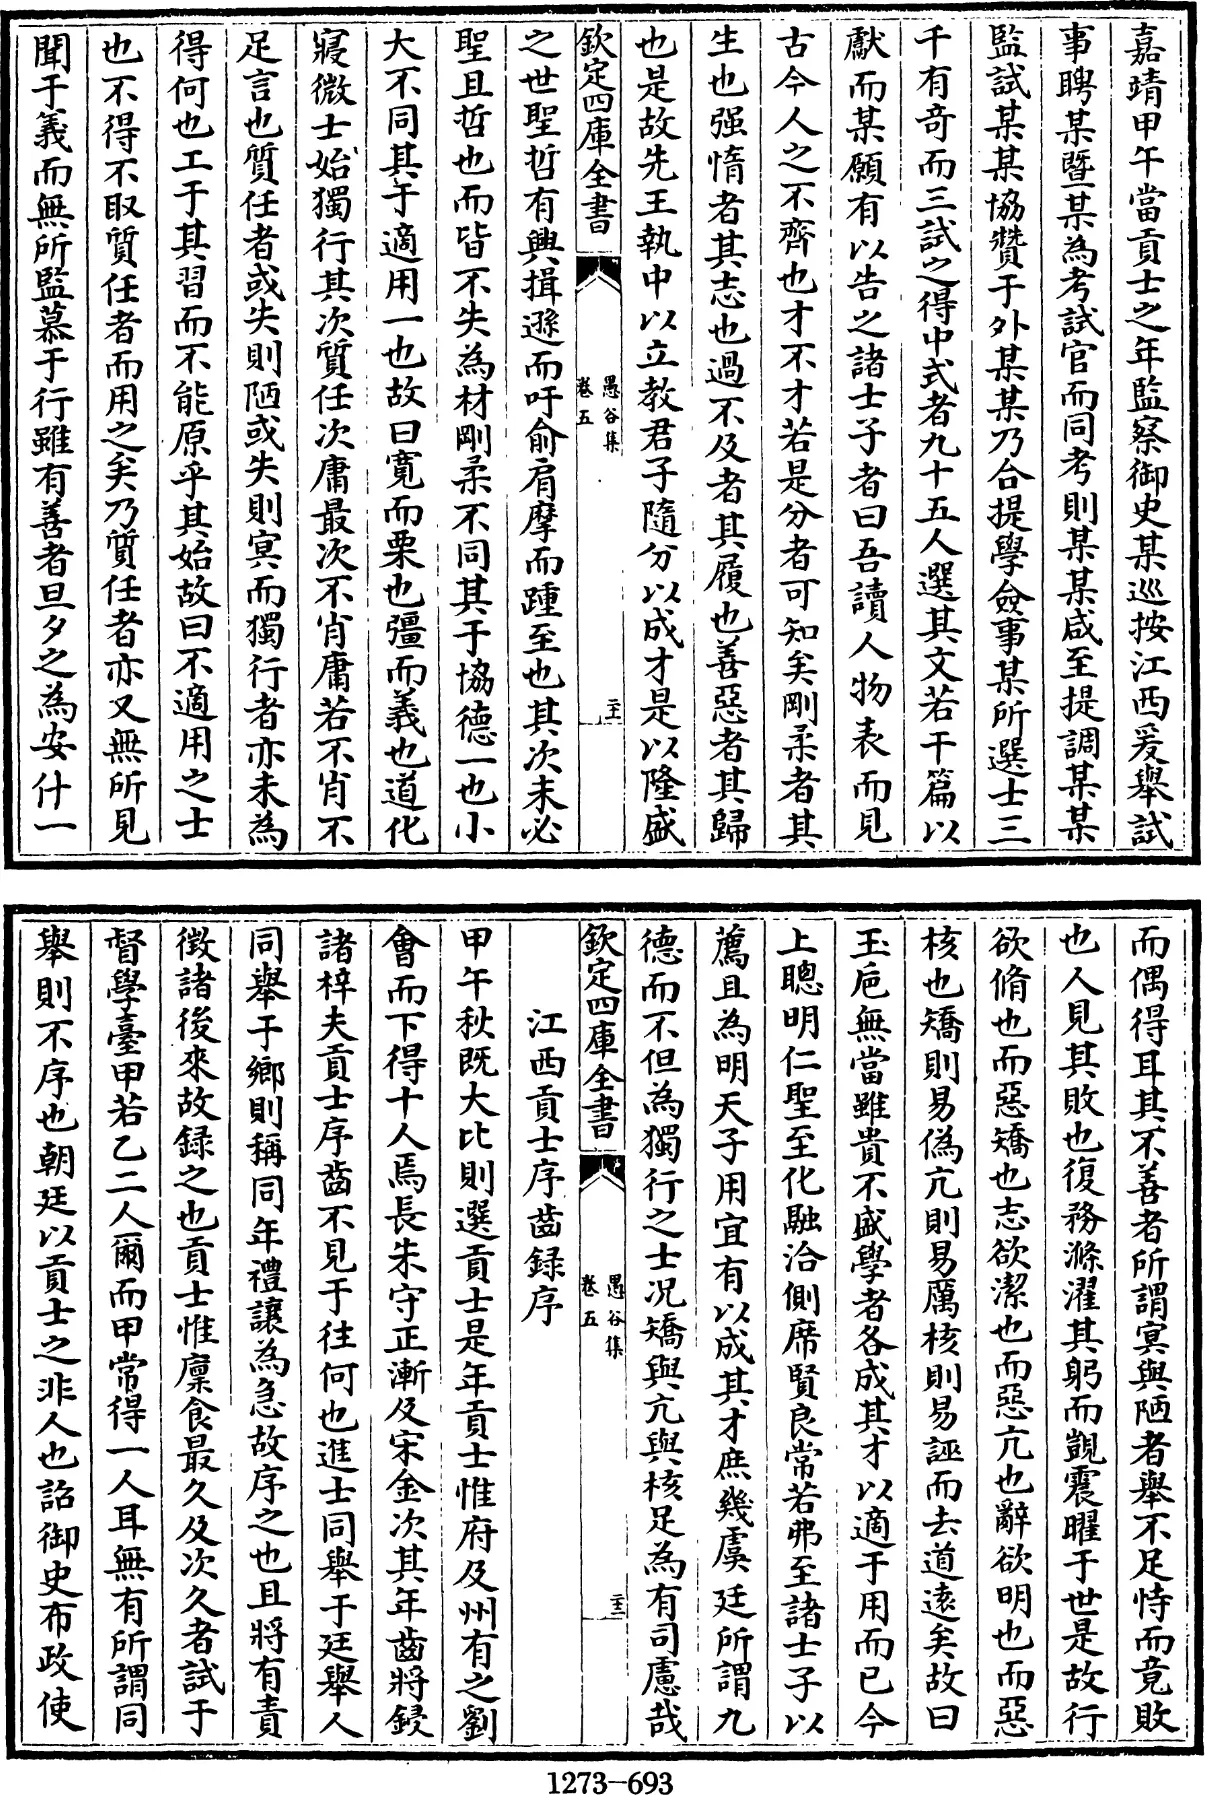 嘉靖甲午當貢士之年監察御史某巡按江西爰舉試
事聘某暨某為考試官而同考則某某咸至提調某某
監試某某協贊于外某某乃合提學僉事某所選士三
千有奇而三試之得中式者九十五人選其文若干篇以
獻而某願有以告之諸士子者曰吾讀人物表而見
古今人之不齊也才不才若是分者可知矣剛柔者其
生也强惰者其志也過不及者其履也善惡者其歸
也是故先王執中以立教君子隨分以成才是以隆盛
欽定四庫全書
愚谷集
卷五
二十一
之世聖哲有興揖遜而吁俞肩摩而踵至也其次未必
聖且哲也而皆不失為材剛柔不同其于協德一也小
大不同其于適用一也故曰寛而栗也彊而義也道化
寖微士始獨行其次質任次庸最次不肖庸若不肖不
足言也質任者或失則陋或失則冥而獨行者亦未為
得何也工于其習而不能原乎其始故曰不適用之士
也不得不取質任者而用之矣乃質任者亦又無所見
聞于義而無所監慕于行雖有善者旦夕之為安什一
而偶得耳其不善者所謂冥與陋者舉不足恃而竟敗
也人見其敗也復務滌濯其躬而覬震曜于世是故行
欲脩也而惡矯也志欲潔也而惡亢也辭欲明也而惡
核也矯則易偽亢則易厲核則易誣而去道逺矣故曰
玉巵無當雖貴不盛學者各成其才以適于用而已今
上聰明仁聖至化融洽側席賢良常若弗至諸士子以
薦且為明天子用宜有以成其才庶幾虞廷所謂九
德而不但為獨行之士况矯與亢與核足為有司慮哉
欽定四庫全書
愚谷集
卷五
二十二
江西貢士序齒録序
甲午秋既大比則選貢士是年貢士惟府及州有之劉
會而下得十人焉長朱守正漸及宋金次其年齒將錽
諸梓夫貢士序齒不見于往何也進士同舉于廷舉人
同舉于鄉則稱同年禮讓為急故序之也且將有責
徵諸後來故録之也貢士惟廩食最久及次久者試于
督學臺甲若乙二人爾而甲常得一人耳無有所謂同
舉則不序也朝廷以貢士之非人也詔御史布政使
1273-693